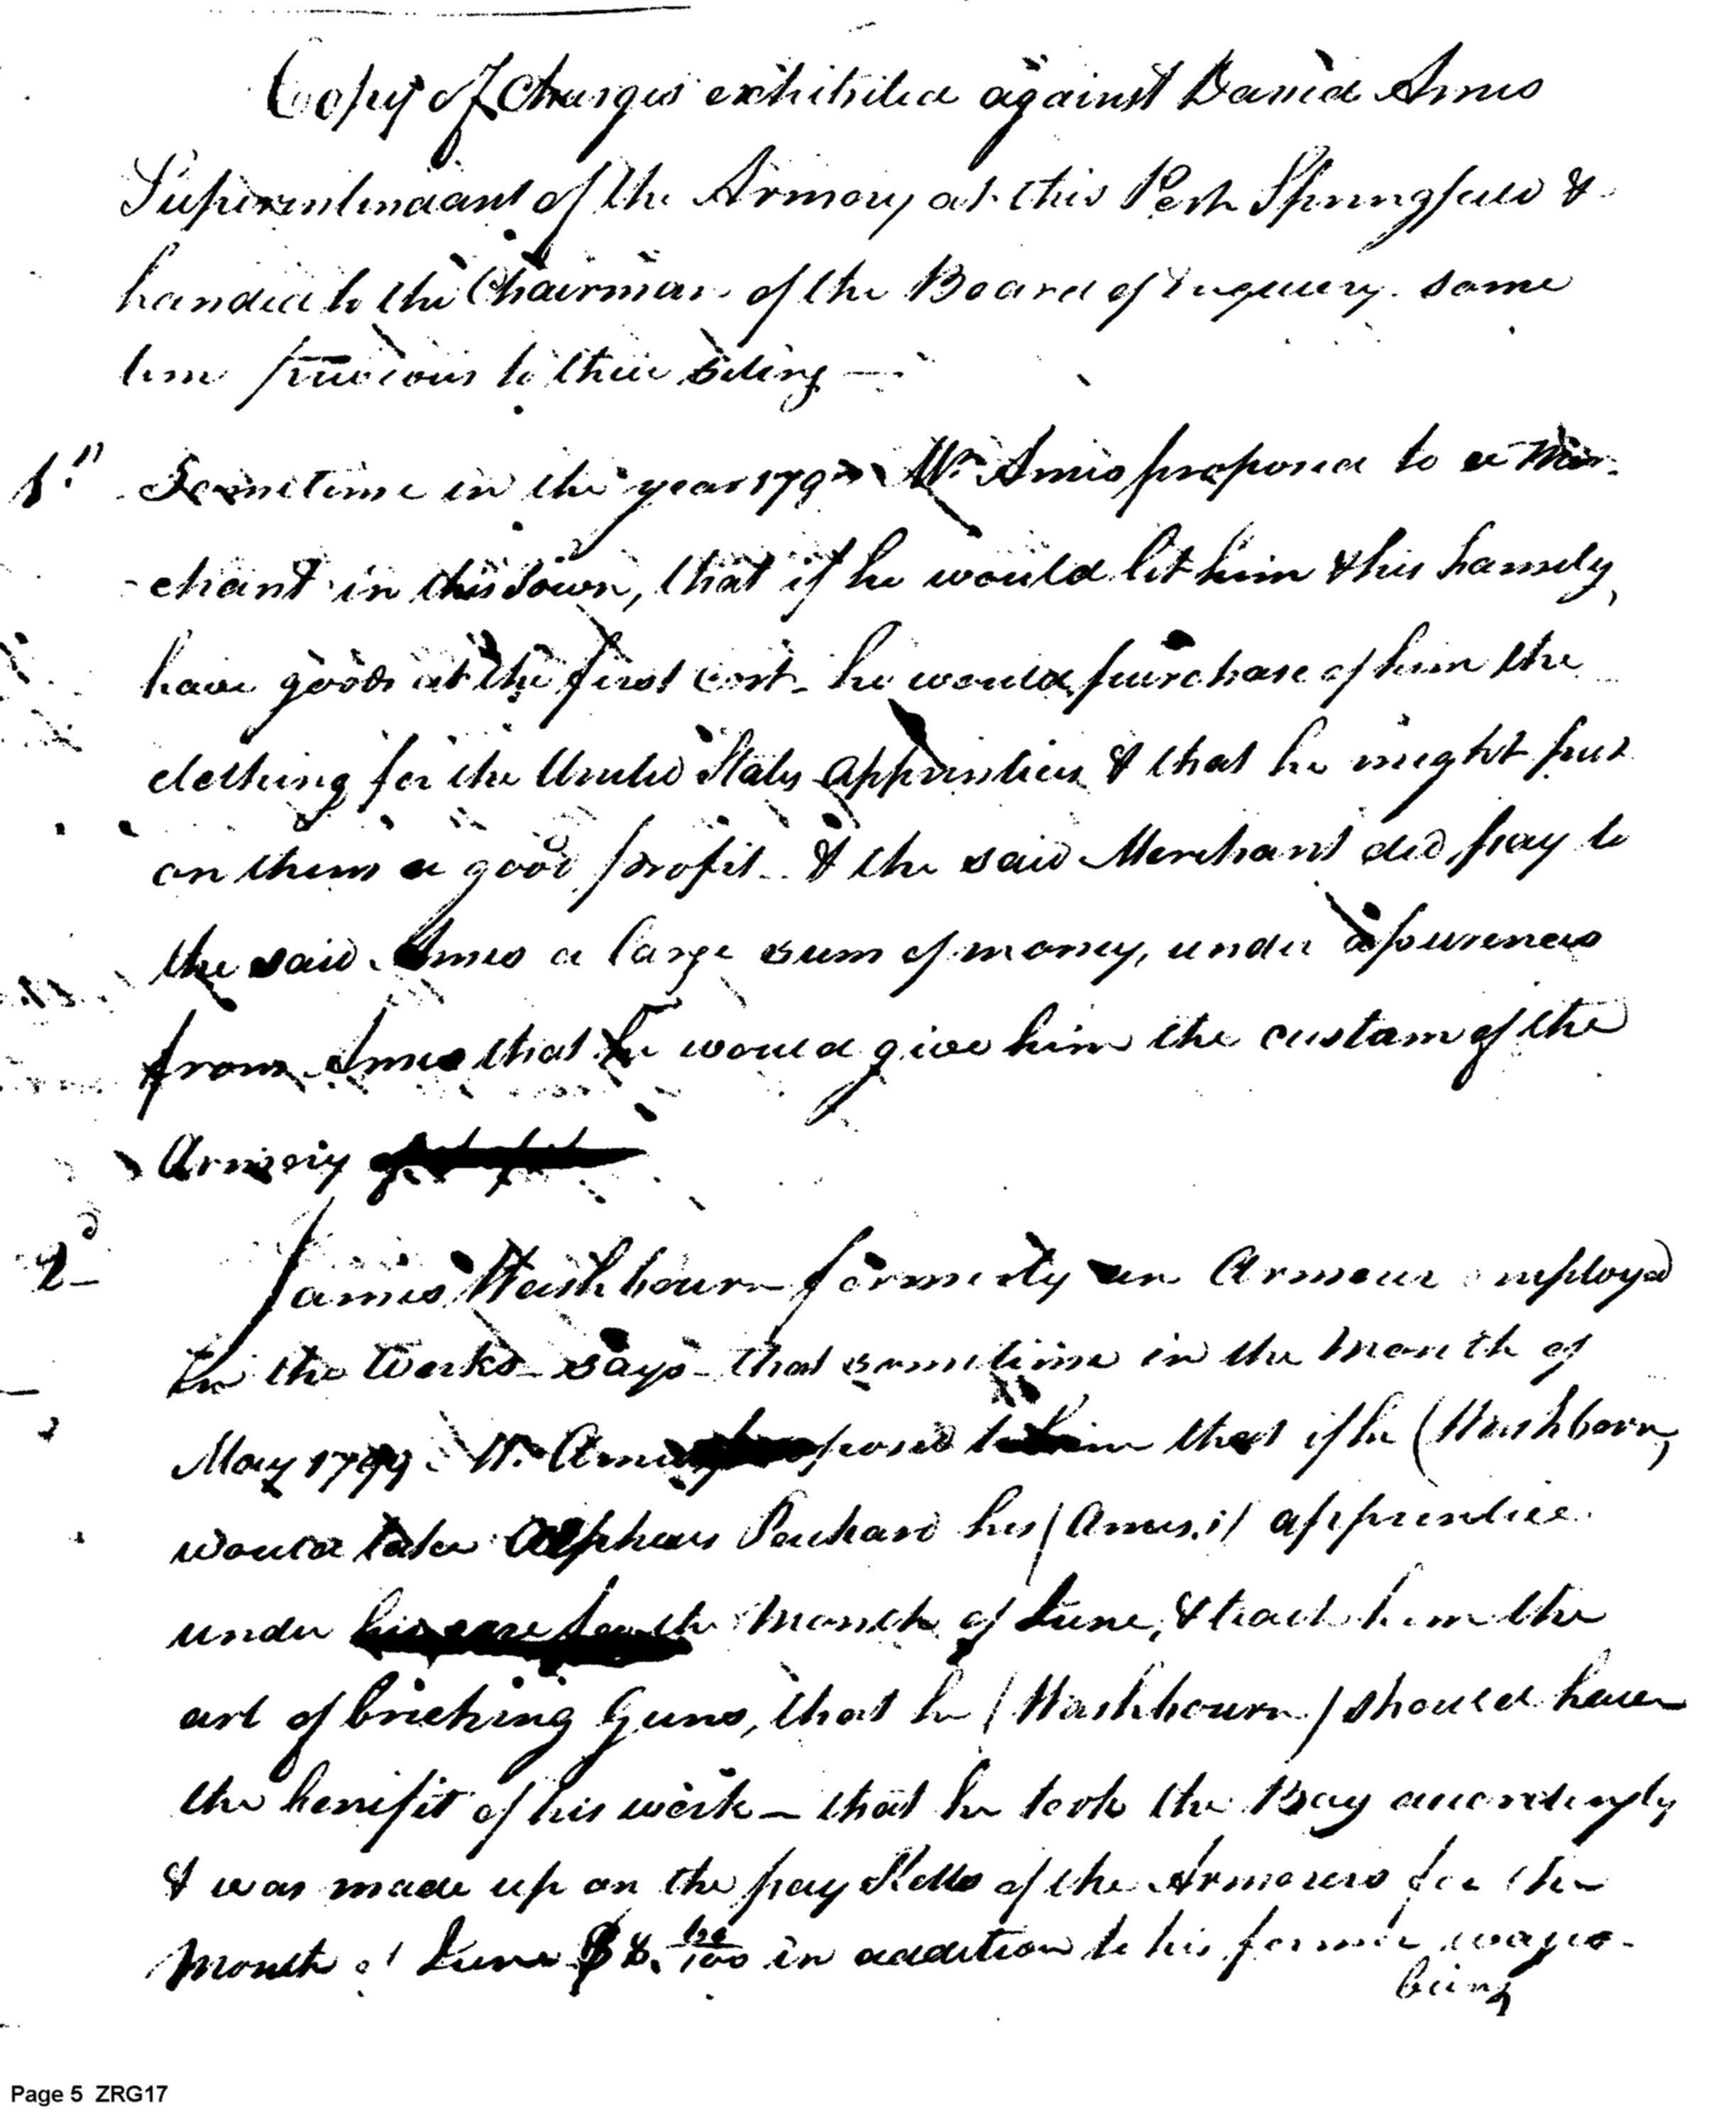 Copy of Charges exhibited against David Ames
Superintendant of the Armory at this Post Springfield &
handed to the Chairman of the Board of Enquiery some
time previous to their siting —
1st Sometime in the year 179 Mr Ames proposed to a Mer-
-chant in this Town, that if he would let him & his family,
have goods at the first cost - he would purchase of him the
clothing for the United States apprentices & that he might put
on them a good profit - & the said Merchant did pay to
the said Ames a large sum of money, under assurences
from Ames that he would give him the custom of the
Armory
2d James Washbourn formerly an Armour employed
in the works - says - that sometime in the month of
May 1799 Mr Ames proposed to him that if he (Washborn)
would take Alpheus his / Ames,s / apprentice
under his care for the Month of June, & teach him the
art of briching Guns, that he / Washbourn / should have
the benifit of his work — that he took the Boy accordingly
& was made up on the pay Rolls of the Armourers for the
Month of June $8. /100 in addition to his former wages -
being
Page 5 ZRG17